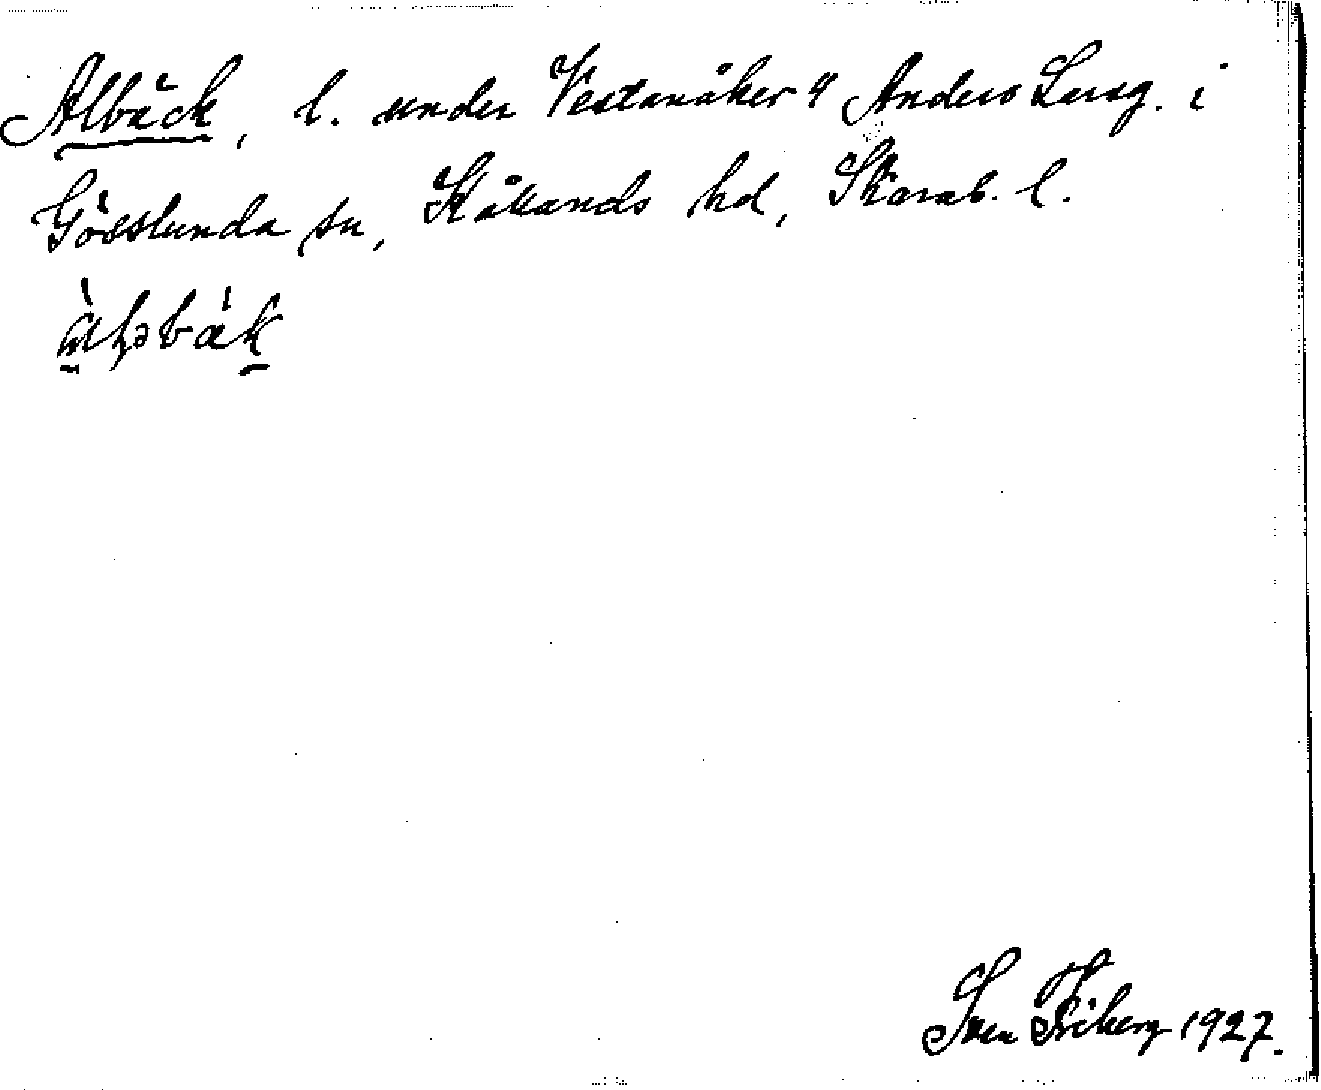 Albäck, l. under Vestanåker 4 Anders Larsg. i
Gösslunda sn, Kållands hd, Skarab. l.
Sven Friberg 1927.